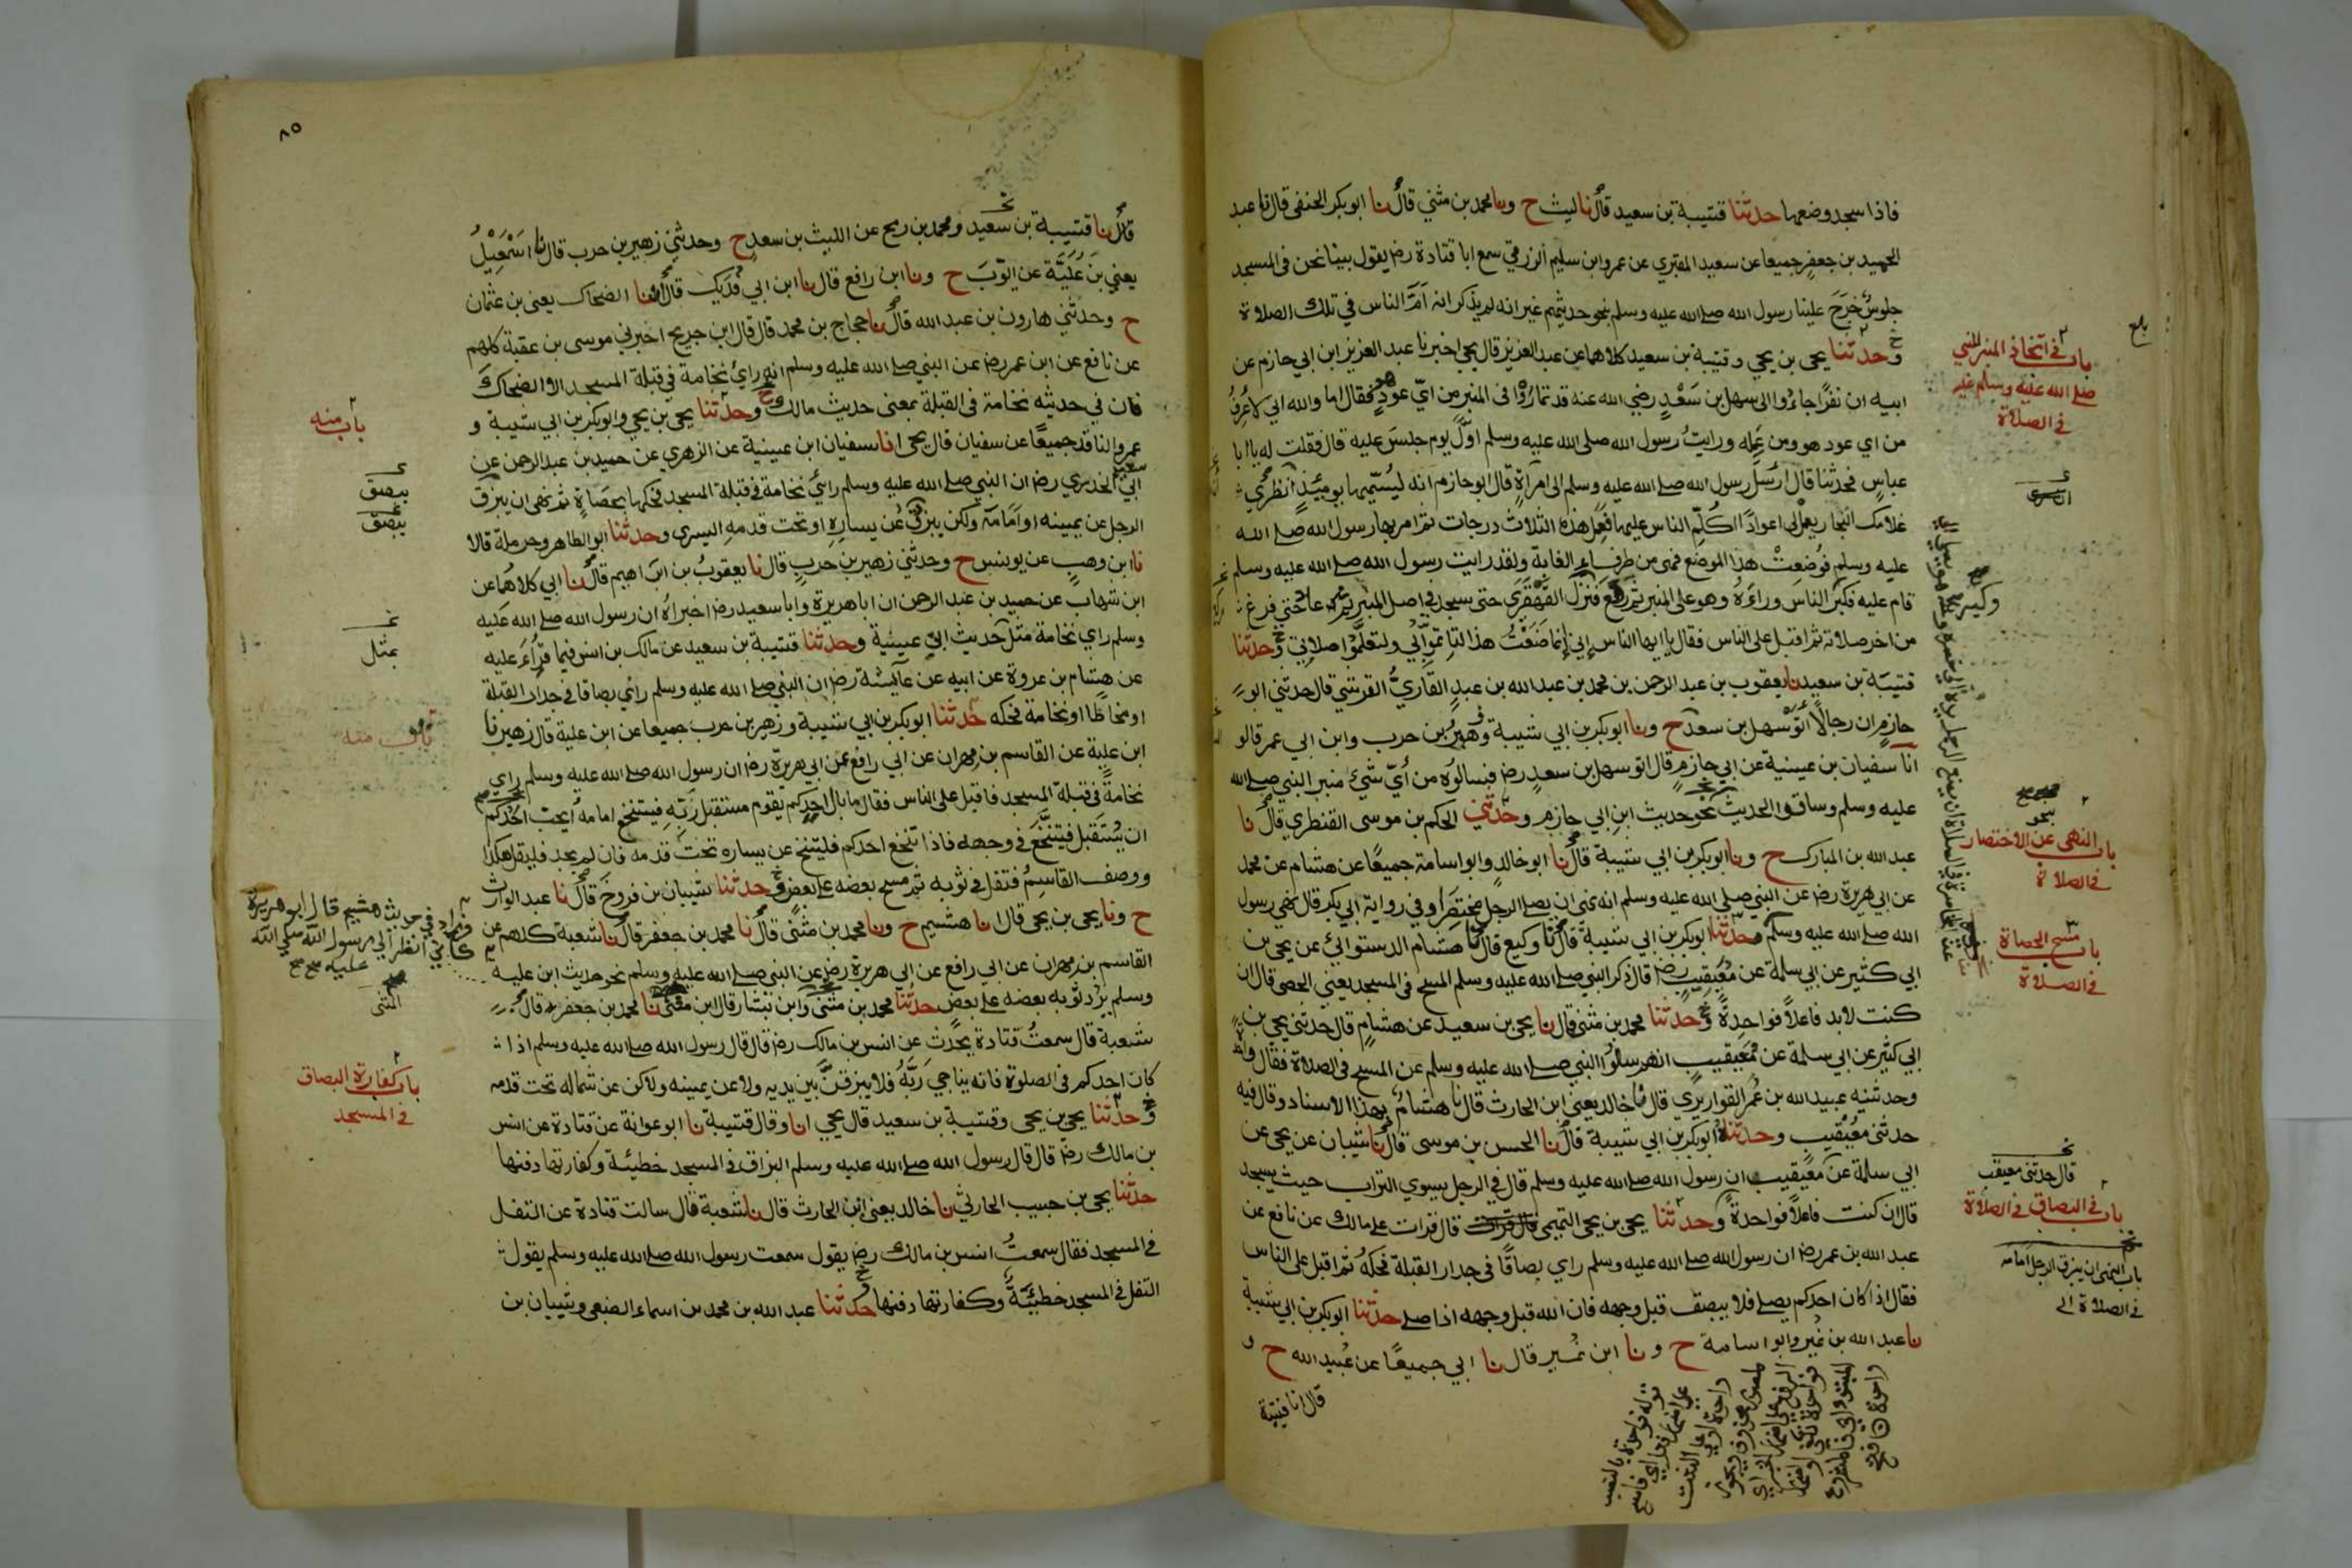 فاذا سجد وضعها حدثنا قتيبة بن سعيد قال نا ليث ح ونا محمد بن مثني قال نا ابو بكر الحنفي قال نا عبد
الحميد بن جعفر جميعا عن سعيد المقبري عن عمرو ابن سليم الزرقي سمع ابا قتادة رض يقول بينا نحن في المسجد
جلوس خرج علينا رسول الله صلى الله عليه وسلم بنحو حديثهم غير انه لم يذكر انه ام الناس في تلك الصلاة
وحدثنا يحي بن يحي وقتيبة بن سعيد كلاهما عن عبد العزيز قال يحي اخبرنا عبد العزيز ابن ابي حازم عن
ابيه ان نفرا جاءوا الى سهل بن سعد رضي الله عنه قد تماروا في المنبر من اي عود هو فقال اما والله اني لاعرف
من اي عود هو ومن عمله ورايت رسول الله صلى الله عليه وسلم اول يوم جلس عليه قال فقلت له يا ابا
عباس فحدثنا قال ارسل رسول الله صلى الله عليه وسلم الى امراة قال ابو حازم انه ليسميها يومئذ انظري
غلامك النجار يعمل لي اعوادا اكلم الناس عليها فعمل هذه الثلاث درجات ثم امر بها رسول الله صلى الله
عليه وسلم فوضعت هذا الموضع فهي من طرفاء الغابة ولقد رايت رسول الله صلى الله عليه وسلم
قام عليه فكبر الناس وراءه وهو على المنبر ثم رفع فنزل القهقري حتى سجد في اصل المنبر ثم عاد حتي فرغ
من اخر صلاته ثم اقبل على الناس فقال يا ايها الناس اني انما صنعت هذا لتاتموا بي ولتعلموا صلاتي وحدثنا
قتيبة بن سعيد نا يعقوب بن عبد الرحمن بن محمد بن عبد الله بن عبد القاري القرشي قال حدثني ابو
حازم ان رجالا اتو سهل بن سعد ح ونا ابو بكر بن ابي شيبة وزهير بن حرب وابن ابي عمر قالو
انا سفيان بن عيينة عن ابي حازم قال اتو سهل بن سعد رض فسالوه من اي شيء منبر النبي صلى الله
عليه وسلم وساقوا الحديث نحو حديث ابن ابي حازم وحدثني الحكم بن موسى القنطري قال نا
عبد الله بن المبارك ح ونا ابو بكر بن ابي شيبة قال نا ابو خالد وابو اسامة جميعا عن هشام عن محمد
عن ابي هريرة رض عن النبي صلى الله عليه وسلم انه نهى ان يصلي الرجل مختصرا وفي رواية ابي بكر قال نهي رسول
الله صلى الله عليه وسلم وحدثنا ابو بكر بن ابي شيبة قال نا وكيع قال نا هشام الدستوائي عن يحي بن
ابي كثير عن ابي سلمة عن معيقيب رض قال ذكر النبي صلى الله عليه وسلم المسح في المسجد يعني الحصى قال ان
كنت لا بد فاعلا فواحدة وحدثنا محمد بن مثني قال نا يحي بن سعيد عن هشام قال حدثني يحي بن
ابي كثير عن ابي سلمة عن معيقيب انهم سالوا النبي صلى الله عليه وسلم عن المسح في الصلاة فقال واحدة
وحدثنيه عبيد الله بن عمر القواريري قال نا خالد يعني ابن الحارث قال نا هشام بهذا الاسناد وقال فيه
حدثني معيقيب وحدثناه ابو بكر بن ابي شيبة قال نا الحسن بن موسى قال نا شيبان عن يحي عن
ابي سلمة عن معيقيب ان رسول الله صلى الله عليه وسلم قال في الرجل يسوي التراب حيث يسجد
قال ان كنت فاعلا فواحدة وحدثنا يحي بن يحي التميمي قال قرات على مالك عن نافع عن
عبد الله بن عمر رض ان رسول الله صلى الله عليه وسلم راي بصاقا في جدار القبلة فحكه ثم اقبل على الناس
فقال اذا كان احدكم يصلي فلا يبصق قبل وجهه فان الله قبل وجهه اذا صلى حدثنا ابو بكر بن ابي شيبة
نا عبد الله بن نمير وابو اسامة ح ونا ابن نمير قال نا ابي جميعا عن عبيد الله ح و
قال انا قتيبة
باب في اتخاذ المنبر للنبي
صلى الله عليه وسلم
في الصلاة
بلغ
وكبر
باب النهي عن الاختصار
في الصلاة
باب مسح الحصاة
في الصلاة
قال حدثني معيقب
باب في البصاق في الصلاة
باب النهي ان يبزق الرجل امامه
في الصلاة
٨٥
قال نا قتيبة بن سعيد ومحمد بن رمح عن الليث بن سعد ح وحدثني زهير بن حرب قال نا اسمعيل
يعني بن علية عن ايوب ح ونا ابن رافع قال نا ابن ابي فديك قال انا الضحاك يعني بن عثمان
ح وحدثني هارون بن عبد الله قال نا حجاج بن محمد قال قال ابن جريج اخبرني موسى بن عقبة كلهم
عن نافع عن ابن عمر رض عن النبي صلى الله عليه وسلم انه راى نخامة في قبلة المسجد الا الضحاك
فان في حديثه نخامة في القبلة بمعنى حديث مالك وحدثنا يحي بن يحي وابو بكر بن ابي شيبة و
عمرو الناقد جميعا عن سفيان قال يحي انا سفيان ابن عيينة عن الزهري عن حميد بن عبد الرحمن عن
ابي سعيد الخدري رض ان النبي صلى الله عليه وسلم راى نخامة في قبلة المسجد فحكها بحصاة ثم نهى ان يبزق
الرجل عن يمينه او امامه ولكن يبزق عن يساره او تحت قدمه اليسرى وحدثنا ابو الطاهر وحرملة قالا
نا ابن وهب عن يونس ح وحدثني زهير بن حرب قال نا يعقوب بن ابراهيم قال نا ابي كلاهما عن
ابن شهاب عن حميد بن عبد الرحمن ان ابا هريرة وابا سعيد رض اخبراه ان رسول الله صلى الله عليه
وسلم راي نخامة مثل حديث ابن عيينة وحدثنا قتيبة بن سعيد عن مالك بن انس فيما قراء عليه
عن هشام بن عروة عن ابيه عن عايشة رض ان النبي صلى الله عليه وسلم راي بصاقا في جدار القبلة
او مخاطا او نخامة فحكه حدثنا ابو بكر بن ابي شيبة وزهير بن حرب جميعا عن ابن علية قال زهير نا
ابن علية عن القاسم بن مهران عن ابي رافع عن ابي هريرة رض ان رسول الله صلى الله عليه وسلم راي
نخامة في قبلة المسجد فاقبل على الناس فقال ما بال احدكم يقوم مستقبل ربه فيتنخع امامه ايحب احدكم
ان يستقبل فيتنخع في وجهه فاذا تنخع احدكم فليتنخع عن يساره تحت قدمه فان لم يجد فليقل هكذا
ووصف القاسم فتفل في ثوبه ثم مسح بعضه على بعض وحدثنا شيبان بن فروخ قال نا عبد الوارث
ح ونا يحي بن يحي قال انا هشيم ح ونا محمد بن مثنى قال نا محمد بن جعفر قال نا شعبة كلهم عن
القاسم بن مهران عن ابي رافع عن ابي هريرة رض عن النبي صلى الله عليه وسلم نحو حديث ابن علية
وسلم يرد ثوبه بعضه على بعض حدثنا محمد بن مثنى وابن بشار قال ابن مثنى نا محمد بن جعفر قال
شعبة قال سمعت قتادة يحدث عن انس بن مالك رض قال قال رسول الله صلى الله عليه وسلم اذا
كان احدكم في الصلوة فانه يناجي ربه فلا يبزقن بين يديه ولا عن يمينه ولاكن عن شماله تحت قدمه
وحدثنا يحي بن يحي وقتيبة بن سعيد قال يحي انا وقال قتيبة نا ابو عوانة عن قتادة عن انس
بن مالك رض قال قال رسول الله صلى الله عليه وسلم البزاق في المسجد خطيئة وكفارتها دفنها
حدثنا يحي بن حبيب الحارثي نا خالد يعني ابن الحارث قال نا شعبة قال سالت قتادة عن التفل
في المسجد فقال سمعت انس بن مالك رض يقول سمعت رسول الله صلى الله عليه وسلم يقول
التفل في المسجد خطيئة وكفارتها دفنها وحدثنا عبد الله بن محمد بن اسماء الضبعي وشيبان بن
باب منه
يبصق
يبصق
بمثل
باب منه
وزاد في حديث هشيم قال ابو هريرة
كاني انظر الى رسول الله صلى الله
عليه
المثنى
باب كفارة البصاق
في المسجد